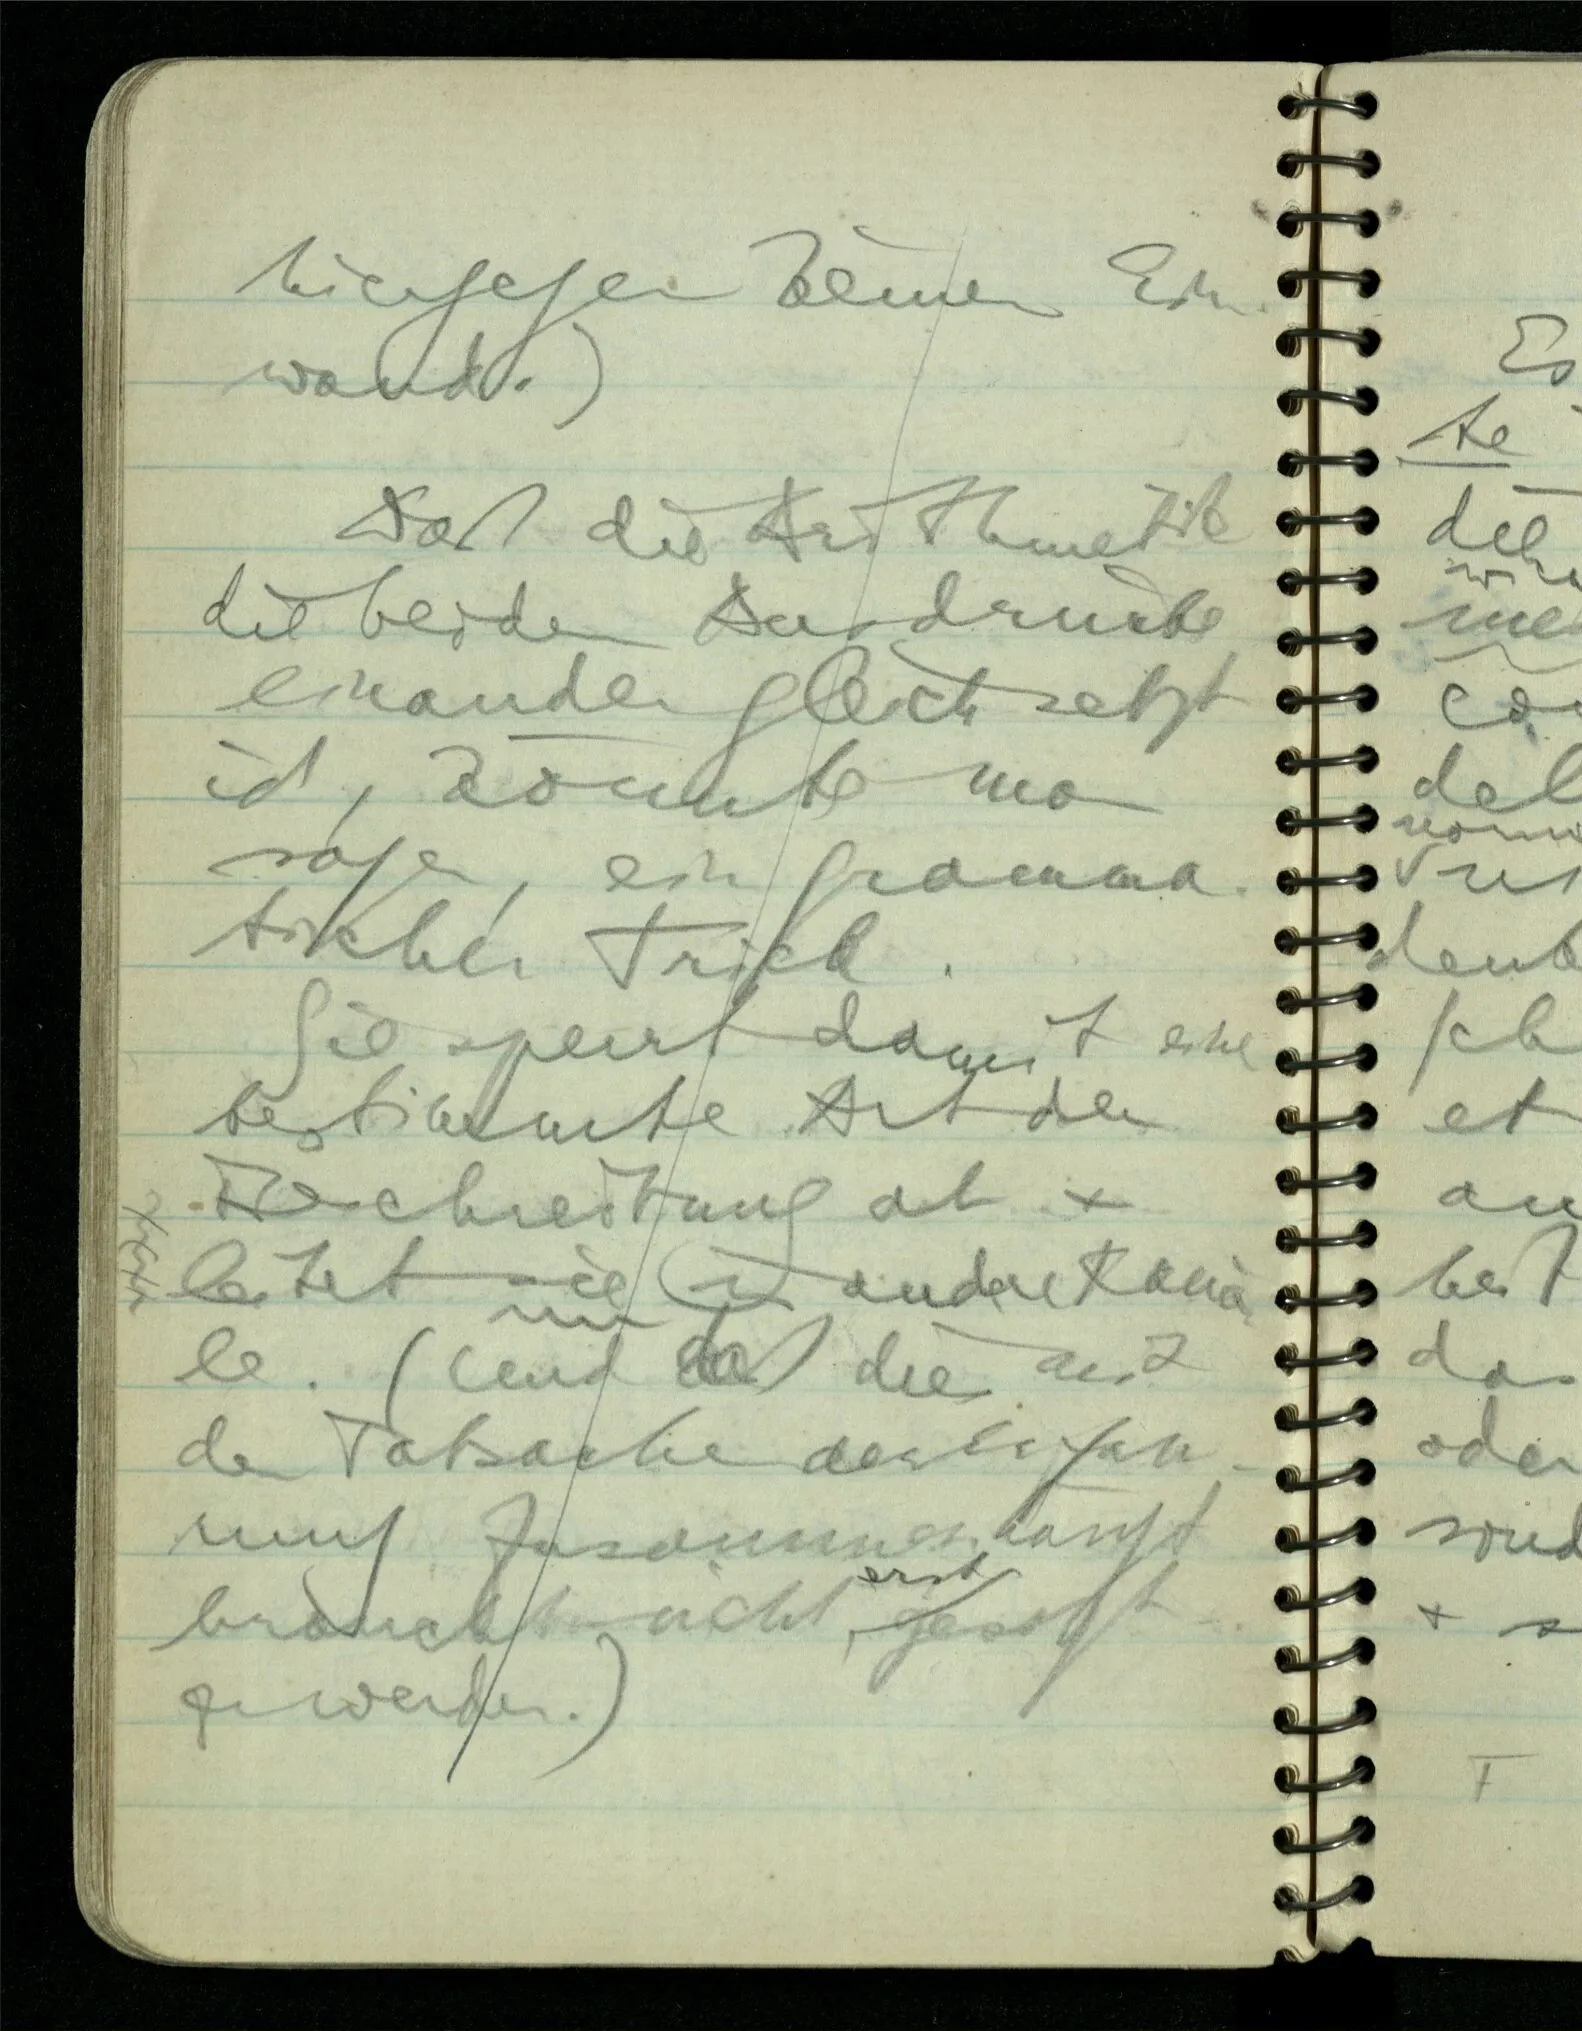 hiergegen keinen Ein-
wand.)
Daß die Arithmetik
die beiden Ausdrücke
einander gleichsetzt
ist, könnte man
sagen, ein gramma-
tischer Trick.
Sie sperrt damit eine
bestimmte Art der
Beschreibung ab +
leitet sie in andere Kanä
le. (Und daß dies mit
der Tatsache der Erfah-
rung zusammenhängt
braucht nicht, erst gesagt
zu werden.)
Es
te
det
me
co
del
denk
Ich
et
an
best
das
oder
sond
+ s
F